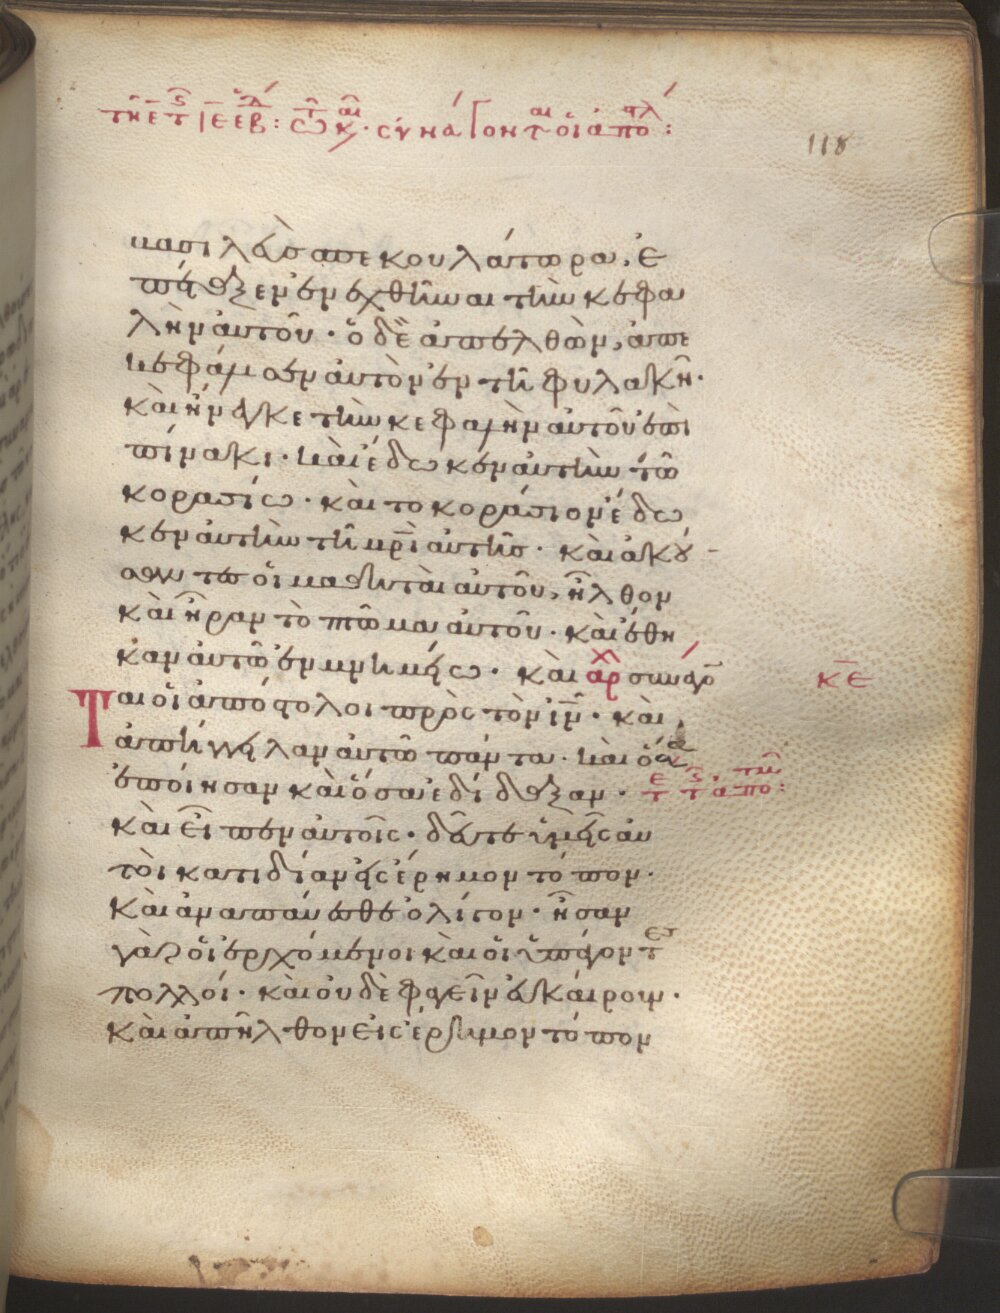 118
μασιλεὺς σπεκουλάτωρα, ἐ
πέταξεν ἐνεχθῆναι τὴν κεφα
λὴν αὐτοῦ · ὁ δὲ ἀπελθὼν, ἀπε
κεφάλησεν αὐτὸν ἐν τῆ φυλακῆ ·
καὶ ἤνεγκε τὴν κεφαλὴν αὐτοῦ ἐπὶ
πίνακι · καὶ ἔδωκεν αὐτὴν τῶ
κορασίω · καὶ τὸ κοράσιον ἔδω
κεν αὐτὴν τῆ μρὶ αὐτῆς · καὶ ἀκού
σαντες οἱ μαθηταὶ αὐτοῦ, ἦλθον
καὶ ἦραν τὸ πτῶμα αὐτοῦ · καὶ ἔθη
καν αὐτῶ ἐν μνημείω · καὶ ἀρχ συνάγο
κε
Ται οἱ ἀπόστολοι πρὸς τὸν ιν · καὶ
ἀπήγγειλαν αὐτῶ πάντα · καὶ ὅσα
ἐποίησαν καὶ ὅσα ἐδίδαξαν ·
καὶ εἶπεν αὐτοῖς · δεῦτε ὑμεῖς αὐ
τοὶ κατιδίαν εἰς ἔρημον τόπον ·
καὶ ἀναπαύεσθε ὀλίγον · ἦσαν
γὰρ οἱ ἐρχόμενοι καὶ οἱ ὑπάγοντες
πολλοί · καὶ οὐδὲ φαγεῖν εὐκαίρουν ·
καὶ ἀπῆλθον εἰς ἔρημον τόπον